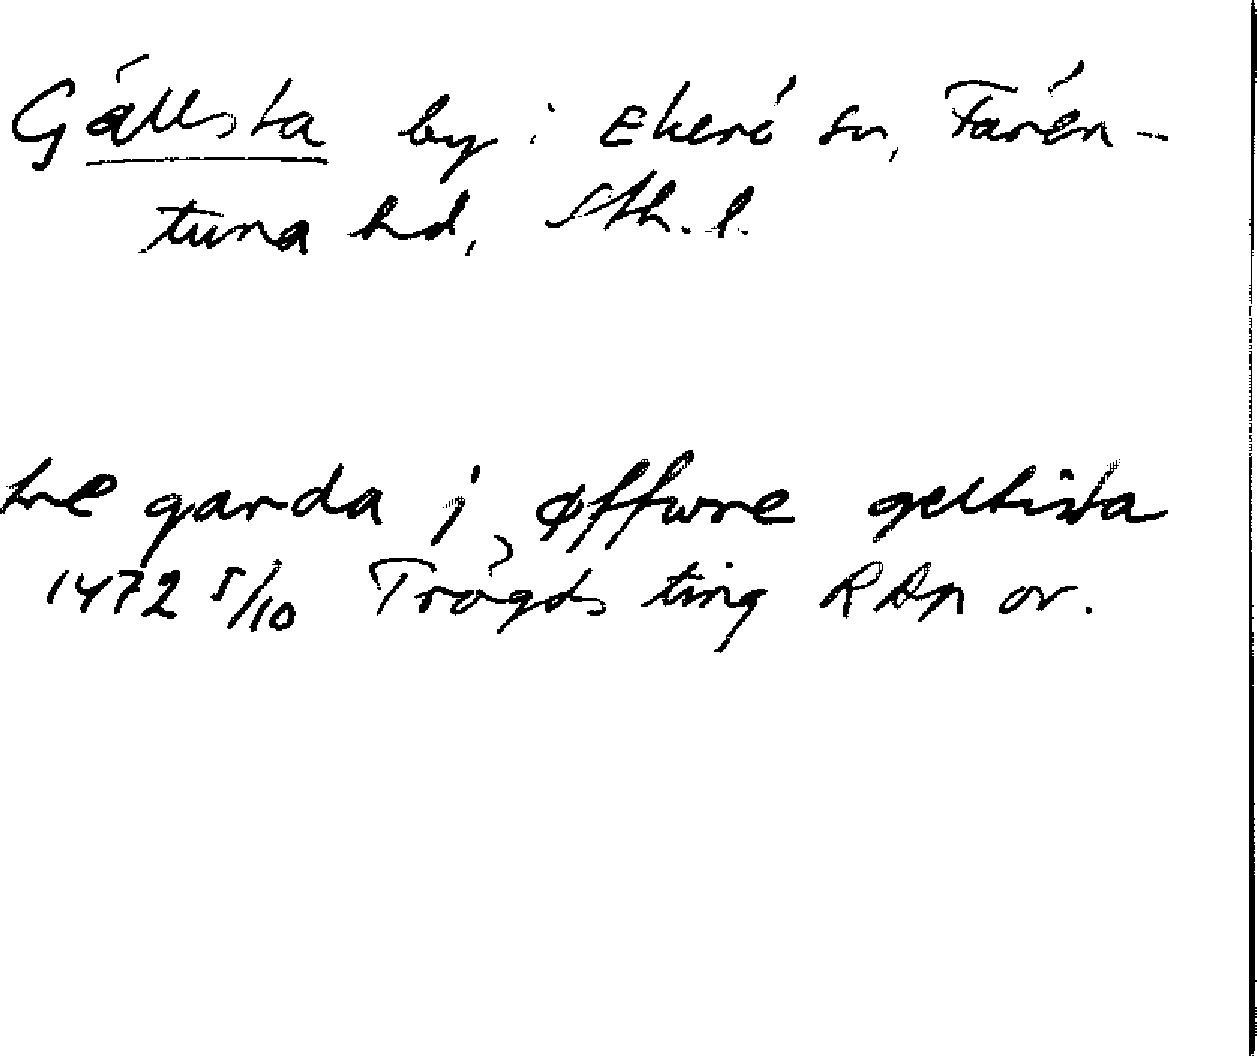 Gällsta by i Ekerö sn, Fären-
tuna hd, Sth. l.
tre garda j øffwre geltista
1472 5/10 Trögds ting RAp or.